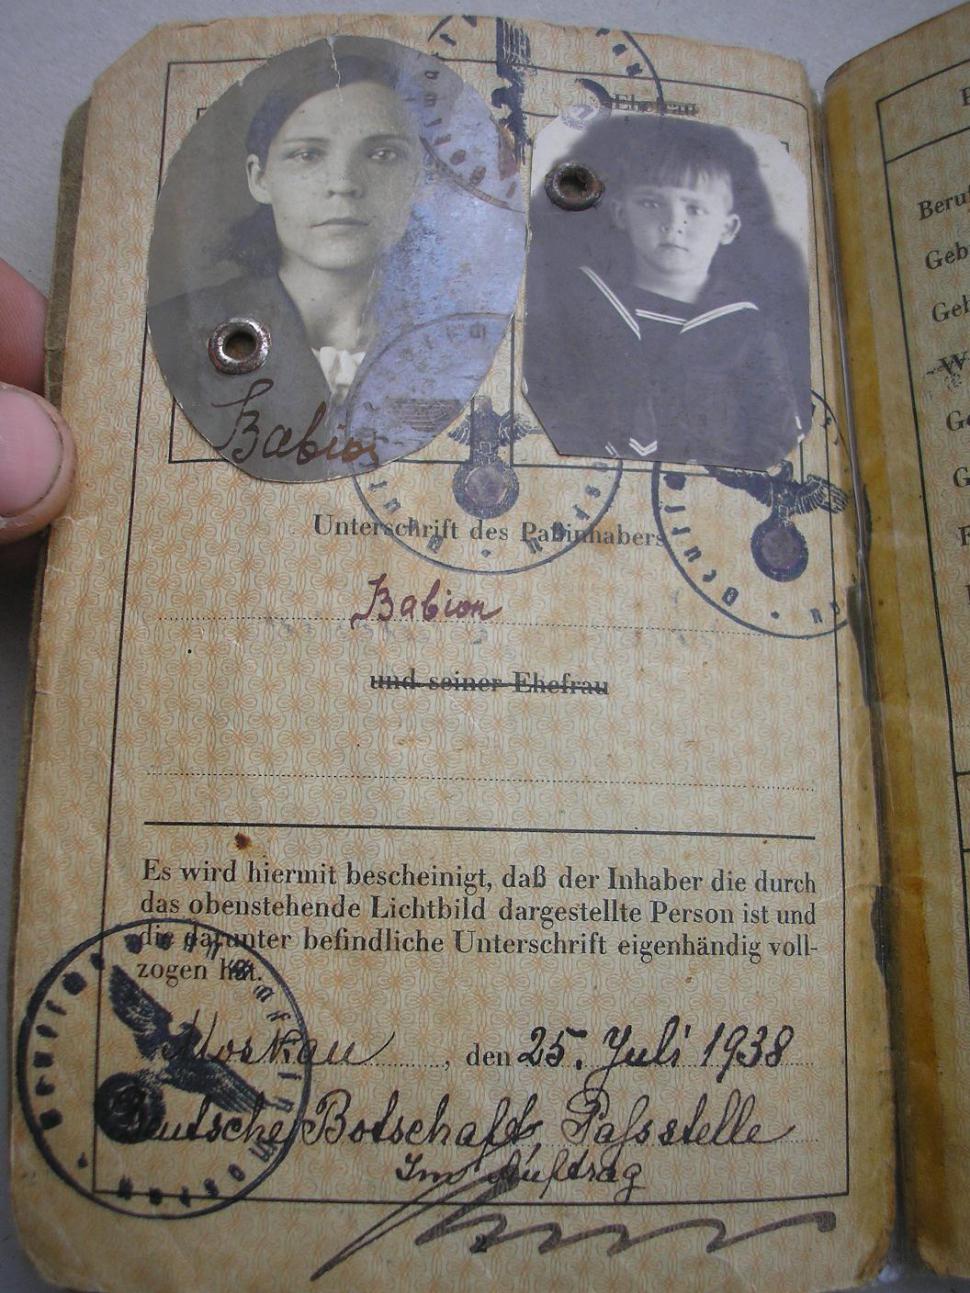 Ehefrau
Babion
Unterschrift des Paßinhabers
Babion
und seiner Ehefrau
Es wird hiermit bescheinigt, daß der Inhaber die durch
das obenstehende Lichtbild dargestellte Person ist und
die darunter befindliche Unterschrift eigenhändig voll-
zogen hat.
Moskau, den 25. Juli 1938
Deutsche Botschaft, Passstelle
Im Auftrag
Beru
Geb